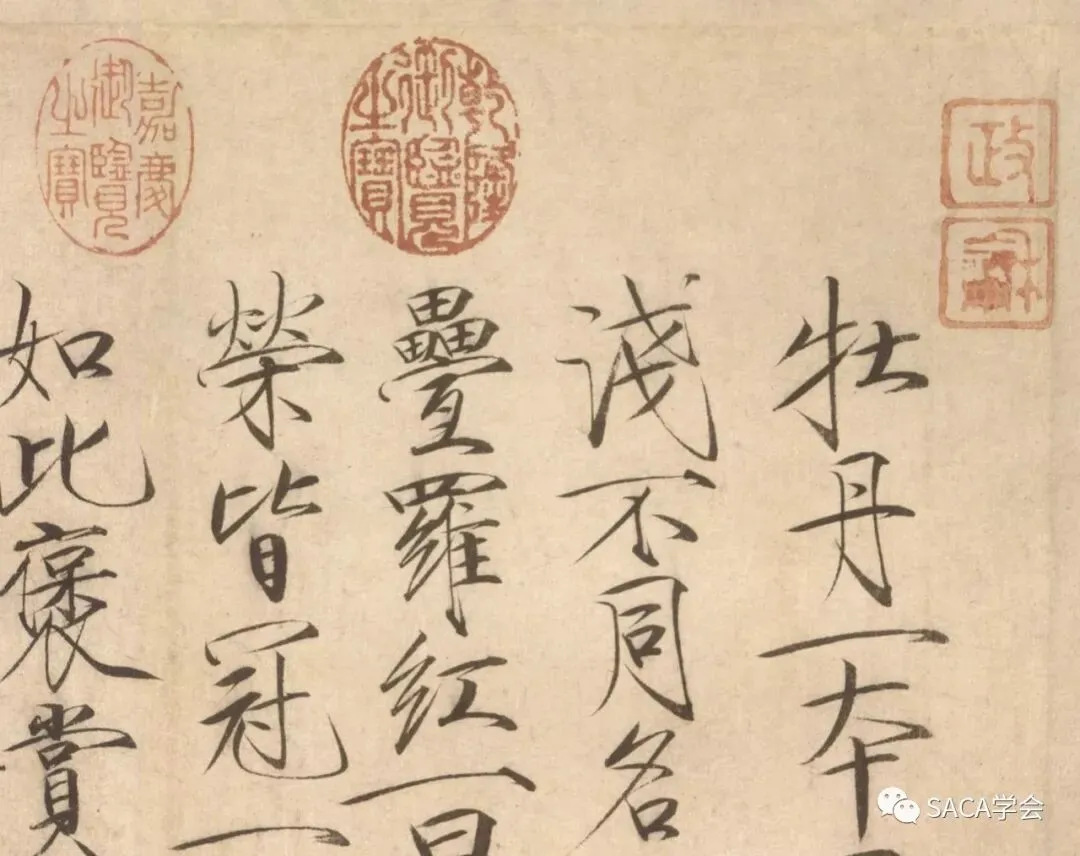 政
乾隆御覽之寶
嘉慶御覽之寶
牡丹一本
淺不同名
疊羅紅一曰
榮皆冠一
如此褒賞
SACA学会